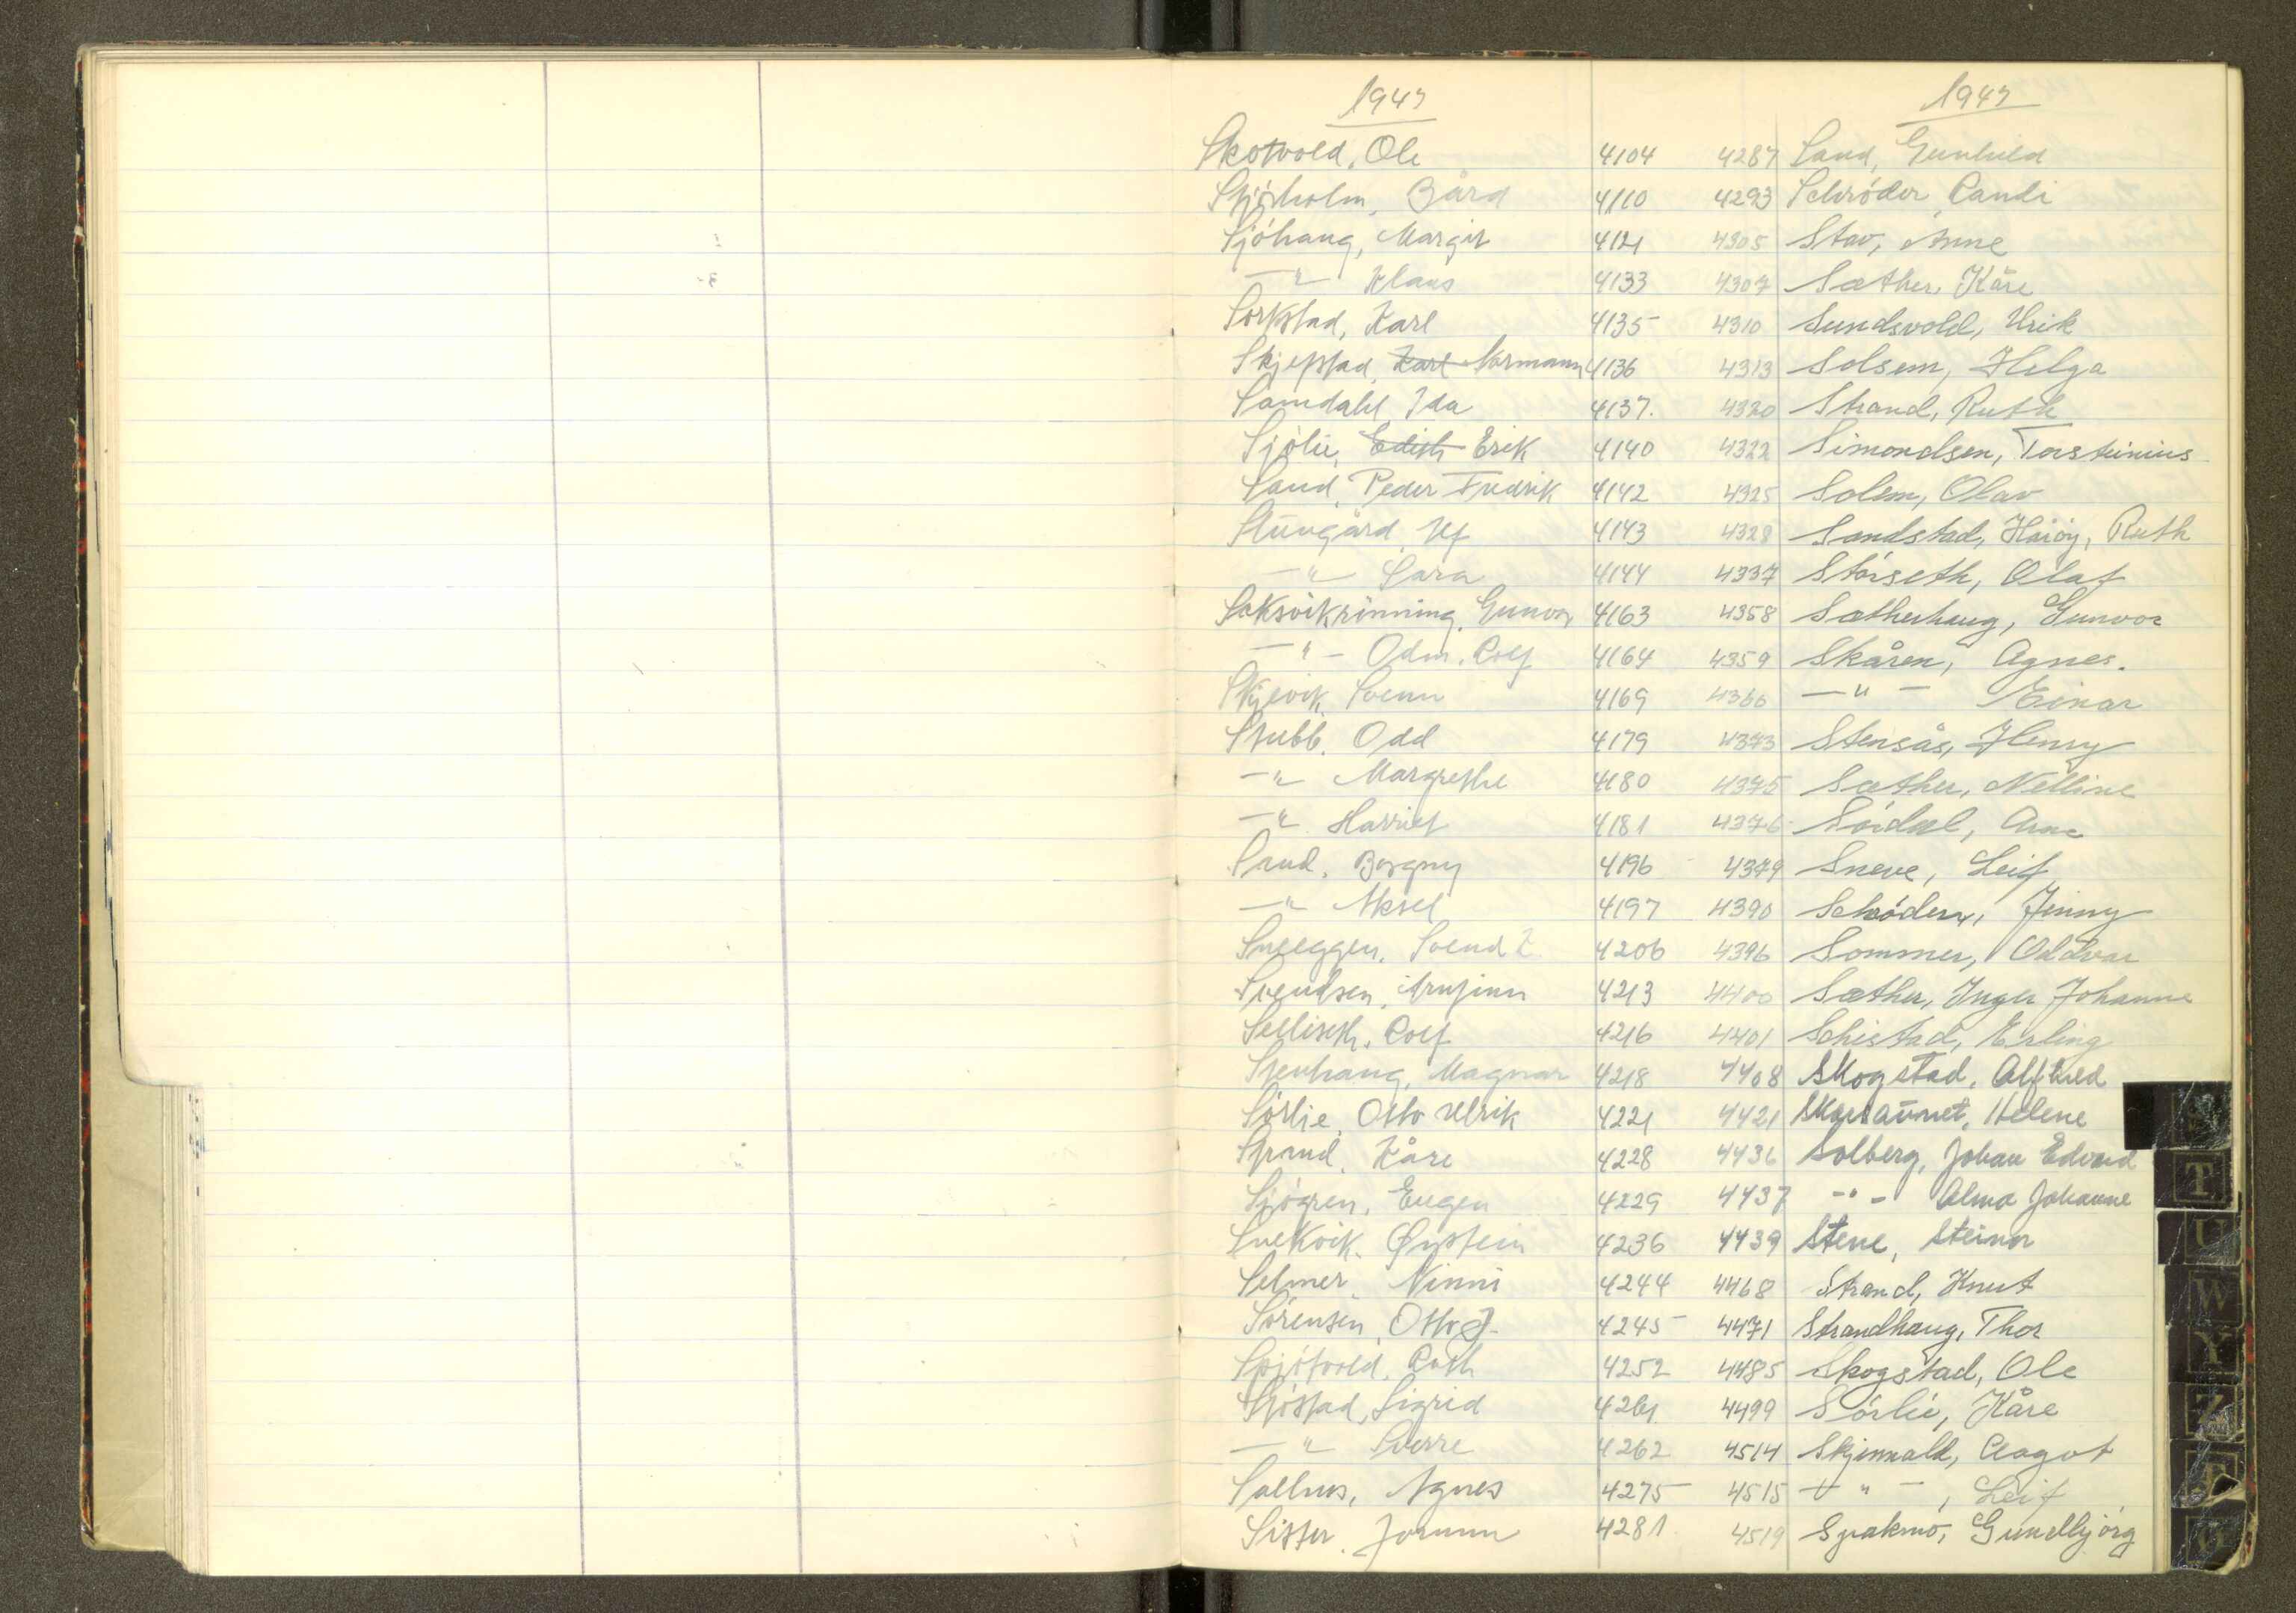 1947
Skotvold, Ole 4104
Sjøholm, Bård 4110
Sjøhaug, Margit 4121
—"— Klaus 4133
Sorkstad, Karl 4135
Skjefstad, Karl Normann 4136
Samdahl, Ida 4137.
Sjølie, Edith Erik 4140
Sand, Peder Fredrik 4142
Stuugård, Ulf 4143
—"— Sara 4144
Saksvikrønning, Gunvor 4163
—"— Odm. Rolf 4164
Skjevik, Svenn 4169
Stubb, Odd 4179
—"— Margrethe 4180
—"— Harriet 4181
Sand, Borgny 4196
—"— Aksel 4197
Sneeggen, Svend 4206
Svendsen, Arnfinn 4213
Selliseth, Rolf 4216
Stenhaug, Magnar 4218
Sørlie, Otto Ulrik 4221
Strand, Kåre 4228
Sjøgren, Eugen 4229
Snekvik, Øystein 4236
Selmer, Ninni 4244
Sørensen, Otto J. 4245
Spjøtvold, Ruth 4252
Sjøstad, Sigrid 4261
—"— Sverre 4262
Sollnes, Agnes 4275
Sister, Jorunn 4281
1947
4287 Sand, Gunhild
4293 Schrøder, Randi
4305 Stav, Anne
4307 Sæther, Kåre
4310 Sundsvold, Ulrik
4313 Solsem, Helga
4320 Strand, Ruth
4322 Simondsen, Torsteinius
4325 Solem, Olav
4328 Sandstad, Håiøy, Ruth
4337 Størseth, Olaf
4358 Sætherhaug, Gunvor
4359 Skåren, Agnes.
4360 —"— Einar
4373 Stensås, Henry
4375 Sæther, Nelline
4376 Sørdal, Arne
4379 Sneve, Leif
4390 Schrøder, Jenny
4396 Sommer, Oddvar
4400 Sæther, Inger Johanne
4401 Schistad, Erling
4408 Skogstad, Alfhild
4421 Skarsaunet, Helene
4436 Solberg, Johan Edvard
4437 —"— Alma Johanne
4439 Stene, Steinar
4468 Strand, Knut
4471 Strandhaug, Thor
4485 Skogstad, Ole
4499 Sørlie, Kåre
4514 Skjemald, Aagot
4515 —"—, Leif
4519 Spakmo, Gundbjørg
T
U
W
Y
Z
Æ
Ø